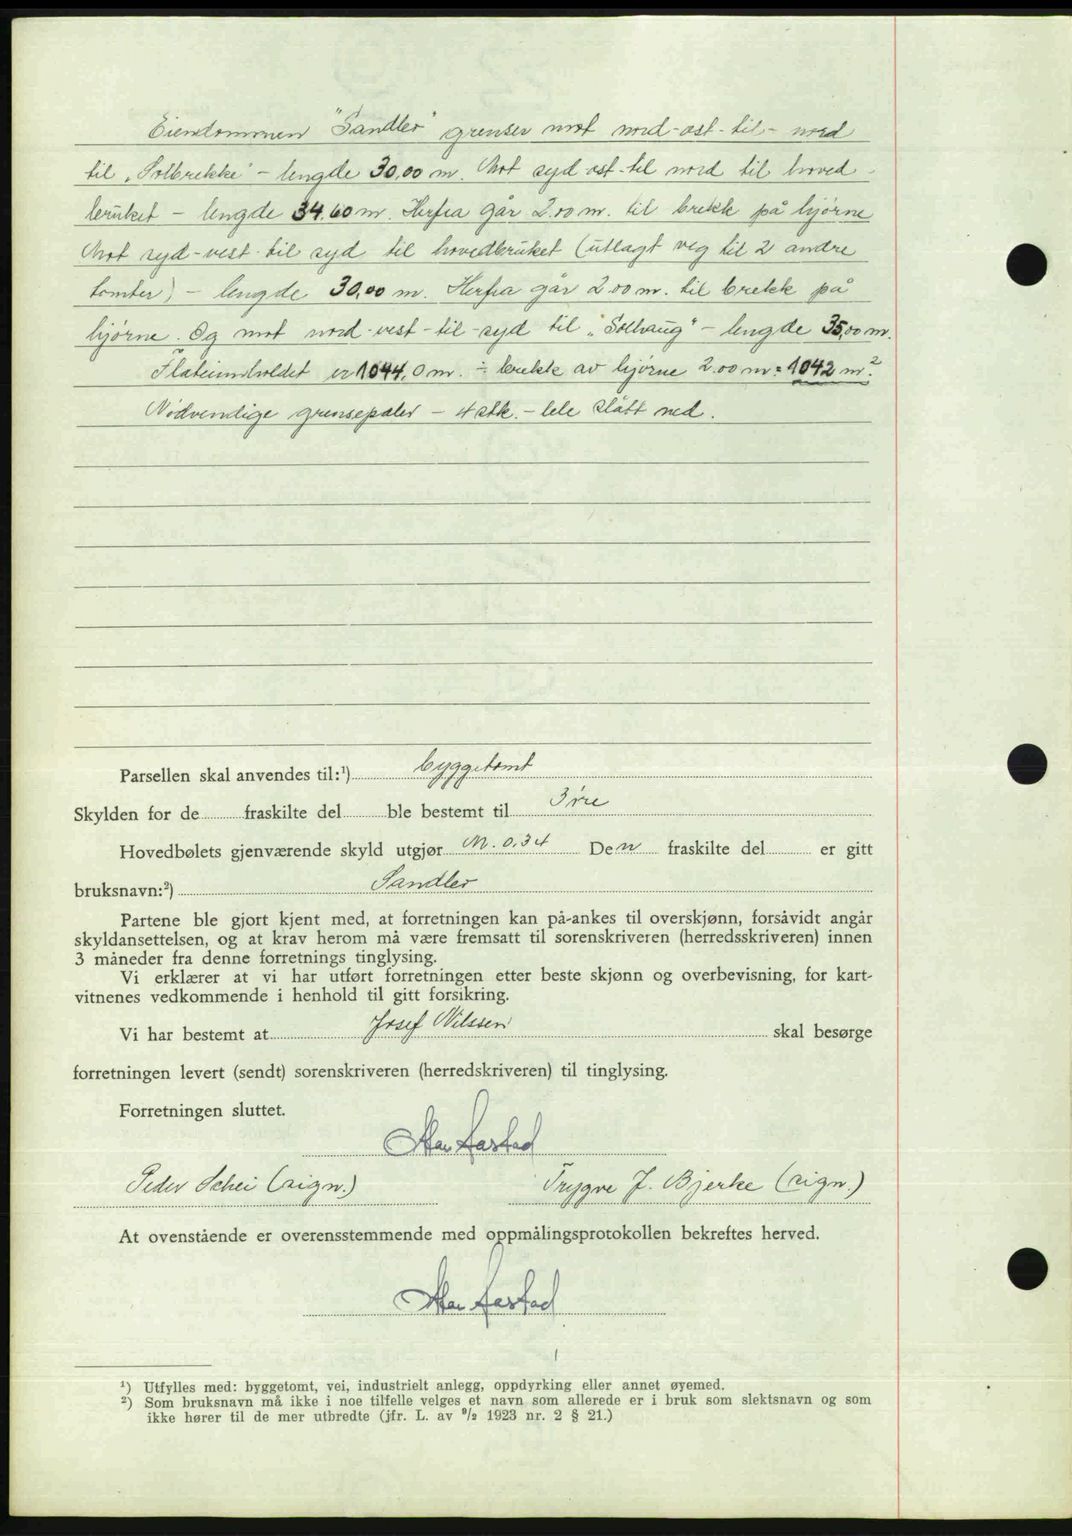 Eiendommen "Sandler" grenser mot nord-ost-til-nord
til "Solbrekke" - lengde 30,00 m. Mot syd-ost-til nord til hoved-
bruket - lengde 34.60 m. Herfra går 2.00 m. til brekk på hjørne
Mot syd-vest-til syd til hovedbruket (utlagt veg til 2 andre
tomter) - lengde 30,00 m. Herfra går 2.00 m. til brekk på
hjørne. Og mot nord-vest-til-syd til "Solhaug" - lengde 35,00 m.
Flateinnholdet er 1044,0 m. ÷ brekk av hjørne 2.00 m = 1042 m².
Nødvendige grensepæler - 4 stk. - ble slått ned.
Parsellen skal anvendes til:¹) byggetomt
Skylden for de fraskilte del ble bestemt til 3 øre
Hovedbølets gjenværende skyld utgjør M. 0.34 Den fraskilte del er gitt
bruksnavn:²) Sandler
Partene ble gjort kjent med, at forretningen kan på-ankes til overskjønn, forsåvidt angår
skyldansettelsen, og at krav herom må være fremsatt til sorenskriveren (herredsskriveren) innen
3 måneder fra denne forretnings tinglysing.
Vi erklærer at vi har utført forretningen etter beste skjønn og overbevisning, for kart-
vitnenes vedkommende i henhold til gitt forsikring.
Vi har bestemt at Josef Nilssen skal besørge
forretningen levert (sendt) sorenskriveren (herredskriveren) til tinglysing.
Forretningen sluttet.
Aastad
Peder Schei (sign.) Trygve J. Bjerke (sign.)
At ovenstående er overensstemmende med oppmålingsprotokollen bekreftes herved.
Aastad
¹) Utfylles med: byggetomt, vei, industrielt anlegg, oppdyrking eller annet øyemed.
²) Som bruksnavn må ikke i noe tilfelle velges et navn som allerede er i bruk som slektsnavn og som
ikke hører til de mer utbredte (jfr. L. av ⁹/₂ 1923 nr. 2 § 21.)